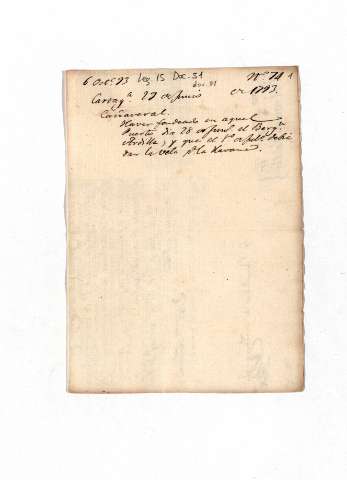 6 Oct.e 93 Leg 15 Doc. 31 N.º 74 1
doc. 31
Cartag.a 29 de Junio de 1793.
Cañaveral.
Haver fondeado en aquel
Puerto dia 28 de Junº el Berg.n
Ardilla; y que el 1.º de Julº debió
dar la vela p.a la Havana.